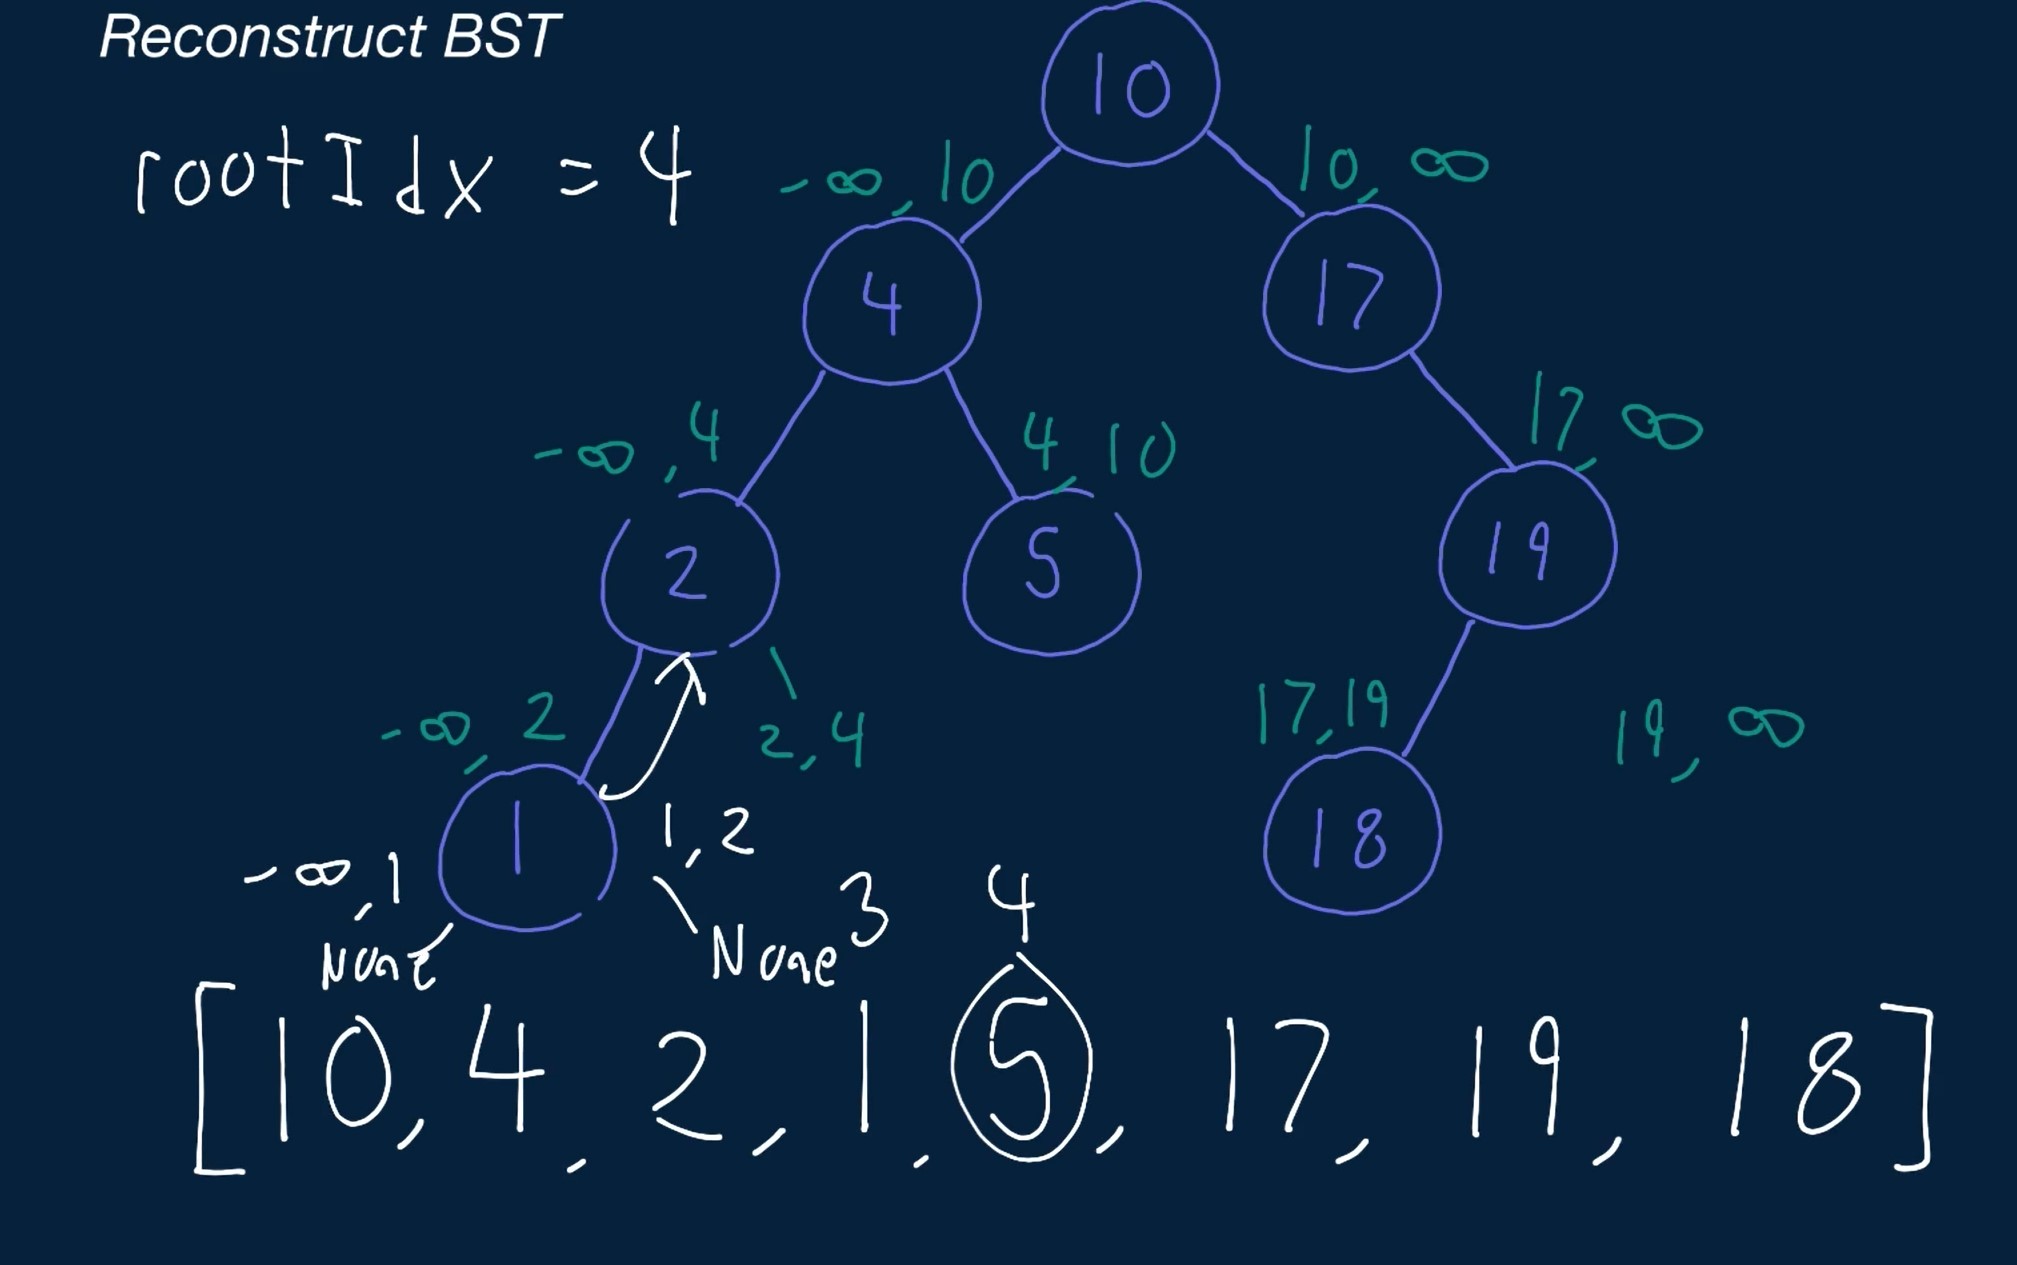 Reconstruct BST
10
rootIdx = 4
-∞, 10
10, ∞
4
17
-∞, 4
4, 10
17, ∞
2
5
19
-∞, 2
2, 4
17, 19
19, ∞
1
1, 2
18
-∞, 1
3
4
None
None
[10, 4, 2, 1, 5, 17, 19, 18]